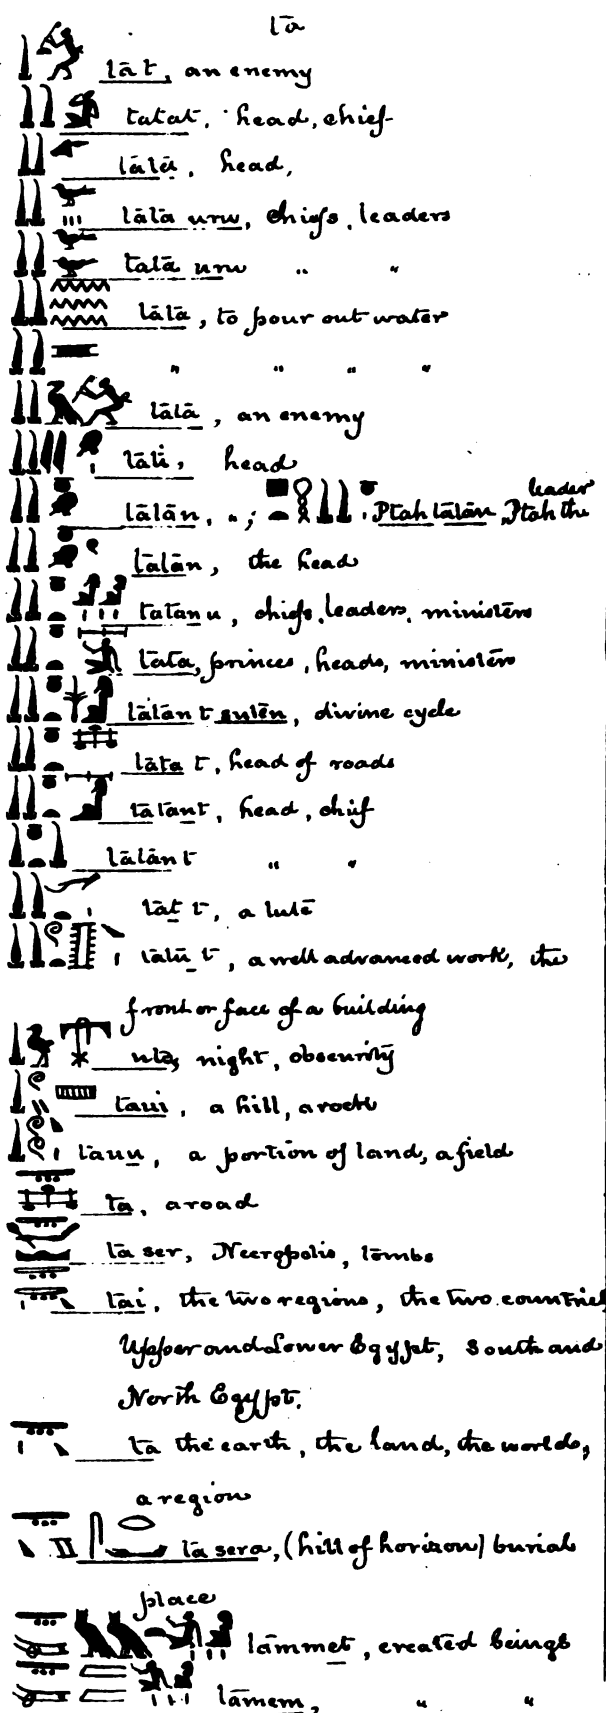 tā
tāt, an enemy
tatat, head, chief
tātā, head,
tātā uru, chiefs, leaders
tatā uru " "
tātā, to pour out water
" " " "
tātā, an enemy
tāti, head
leader
tātān, "; Ptah tātān, Ptah the
tātān, the head
tatanu, chiefs, leaders, ministers
tata, princes, heads, ministers
tātān t sutēn, divine cycle
tāta t, head of roads
tātānt, head, chief
tātānt " "
tāt t, a lute
tātu t, a well advanced work, the
front or face of a building
utā, night, obscurity
taui, a hill, a rock
tāuu, a portion of land, a field
ta, a road
ta ser, Necropolis, tombs
tai, the two regions, the two countries
Upper and Lower Egypt, South and
North Egypt.
ta the earth, the land, the world,
a region
ta sera, (hill of horizon) burial
place
tāmmet, created beings
tāmem, " "